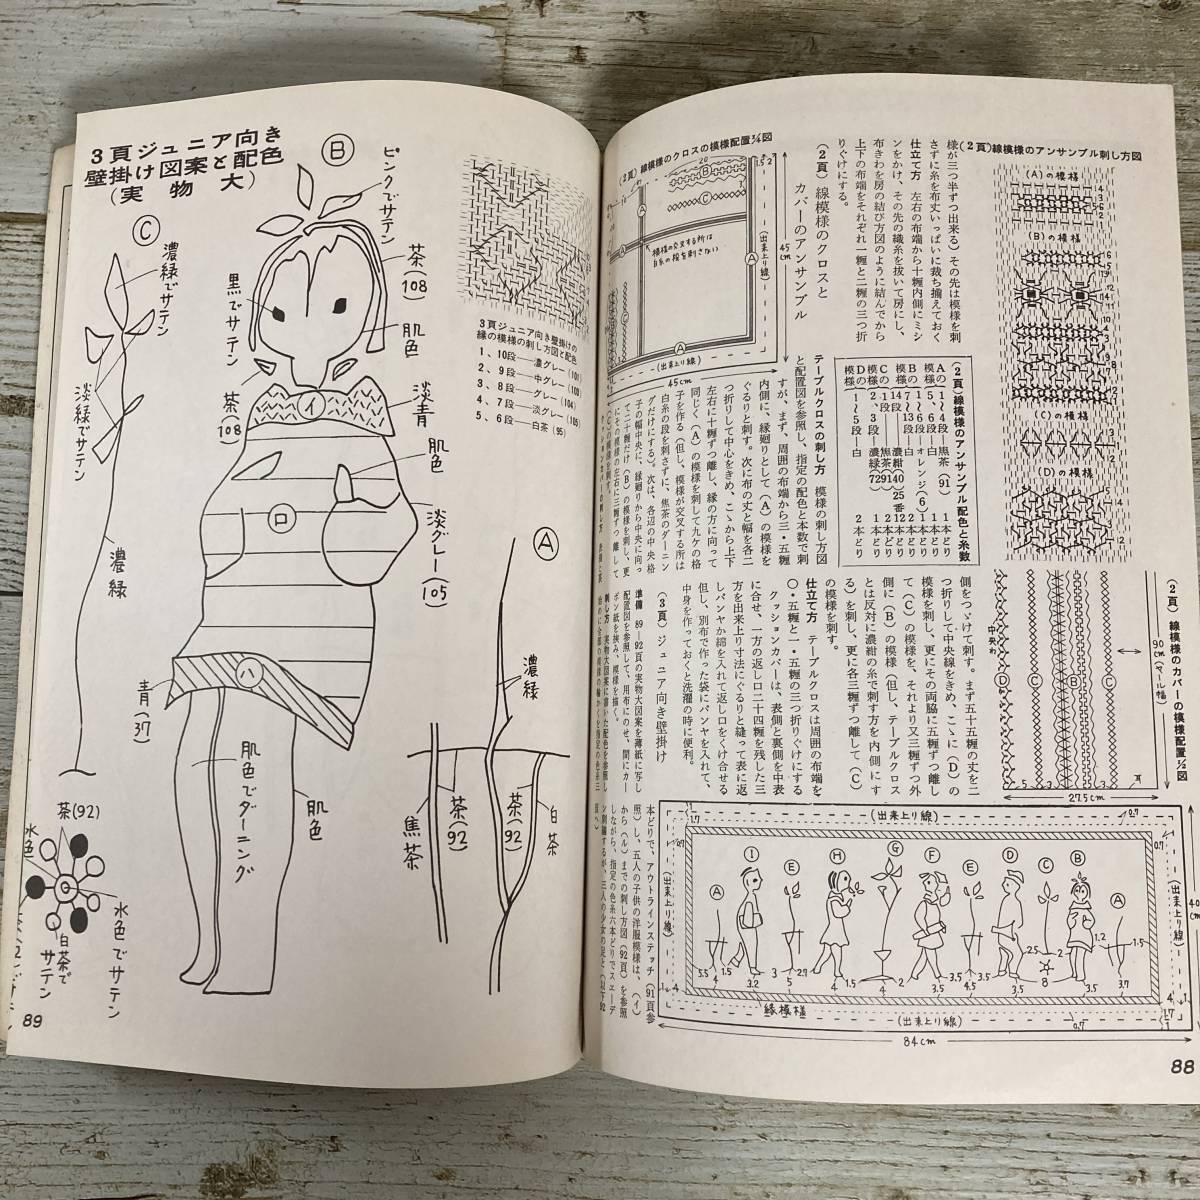 (2頁)線模様のアンサンブル刺し方図
(A)の模様
(B)の模様
(C)の模様
(D)の模様
様が三つ半ずつ出来る)その先は模様を刺
さずに糸を布丈いっぱいに裁ち揃えておく
仕立て方 左右の布端から十糎内側にミシ
ンをかけ、その先の織糸を抜いて房にし、
布きわを房の結び方図のように結んでから
上下の布端をそれぞれ一糎と二糎の三つ折
りぐけにする。
(2頁)線模様のクロスと
カバーのアンサンブル
(2頁)線模様のクロスの模様配置¼図
模様の交叉する所は
白糸の段を刺さない
(出来上り線)
45cm
(出来上り線)
45cm
(2頁)線模様のアンサンブル配色と糸数
Aの模様
1〜4段—焦茶(91) 1本どり
5、6段—白 1本どり
Bの模様
1〜6段—オレンジ(6) 1本どり
7〜13段—白 2本どり
テーブルクロスの刺し方 模様の刺し方図
と配置図を参照し、指定の配色と本数で刺
すが、まず、周囲の布端から三・五糎
内側に、縁廻りとして(A)の模様を
ぐるりと刺す。次に布の丈と幅を各二
つ折りして中心をきめ、こゝから上下
左右に十糎ずつ離し、縁の方に向って
同じく(A)の模様を刺して九ケの格
子を作る(但し、模様が交叉する所は
白糸の段を刺さずに、焦茶のダーニン
グだけにする)。次は、各辺の中央格
子の幅中央に、縁廻りから中央に向っ
て二十糎だけ(B)の模様を刺し、更
にその模様の左右に三糎ずつ離して
(C)の模様を刺す。
側をつゞけて刺す。まず五十五糎の丈を二
つ折りして中央線をきめ、こゝに(D)の
模様を刺し、更にその両脇に五糎ずつ離し
て(C)の模様を、それより又三糎ずつ外
側に(B)の模様(但し、テーブルクロス
とは反対に濃紺の糸で刺す方を内側にす
る)を刺し、更に各三糎ずつ離して(C)
の模様を刺す。
仕立て方 テーブルクロスは周囲の布端を
〇・五糎と一・五糎の三つ折りぐけにする
クッションカバーは、表側と裏側を中表
に合せ、一方の返し口二十四糎を残した三
方を出来上り寸法にぐるりと縫って表に返
しパンヤか綿を入れて返し口をくけ合せる
但し、別布で作った袋にパンヤを入れて、
中身を作っておくと洗濯の時に便利。
(3頁)ジュニア向き壁掛け
準備 89—92頁の実物大図案を薄紙に写し
配置図を参照して、用布にのせ、間にカー
ボン紙を挟み、模様を描く。
刺し方 実物大図案に書いた配色を参照し
(2頁)線模様のカバーの模様配置½図
90cm(ヤール幅)
中央わ
わ
D
C
B
C
27.5cm
本どりで、アウトラインステッチ(91頁参
照)し、五人の子供の洋服模様は、(イ)
から(ル)までの刺し方図(92頁)を参照
しながら、指定の色糸六本どりでスエーデ
ン刺繡するが、三人の少女の足と(以下92
頁へ)
(出来上り線)
(出来上り線)
A I E H G F E D C B A
5.5 4 3.2 3 2.7 4 4 3.5 4.5 3.5 2.5 8 3.5 3.7
縁模様
(出来上り線)
84cm
88
3頁ジュニア向き
壁掛け図案と配色
(実物大)
B
ピンクでサテン
茶(108)
黒でサテン
肌色
茶(108)
淡青
イ
肌色
ロ
淡グレー(105)
ハ
青(37)
肌色でダーニング
肌色
C
濃緑でサテン
淡緑でサテン
濃緑
茶(92)
水色
水色でサテン
白茶でサテン
3頁ジュニア向き壁掛けの
縁の模様の刺し方図と配色
1、10段——濃グレー(101)
2、9段——中グレー(103)
3、8段——グレー(104)
4、7段——淡グレー(105)
5、6段——白茶(95)
A
濃緑
焦茶
茶(92)
茶(92)
白茶
89